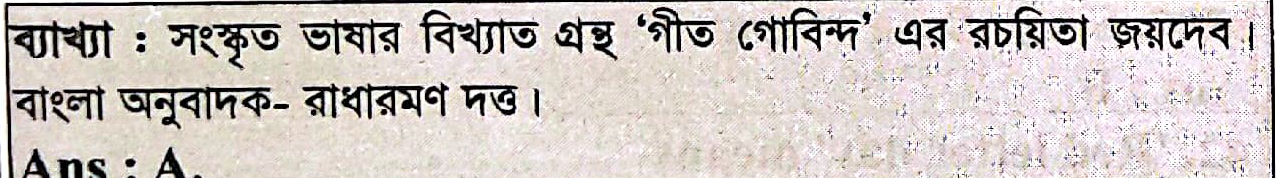 ব্যাখ্যা : সংস্কৃত ভাষার বিখ্যাত গ্রন্থ ‘গীত গোবিন্দ’ এর রচয়িতা জয়দেব।
বাংলা অনুবাদক- রাধারমণ দত্ত।
Ans : A.